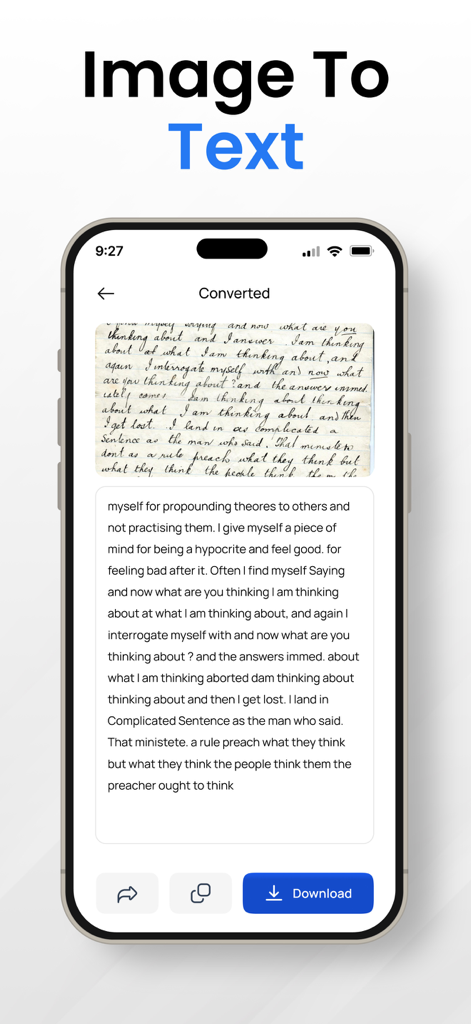 Image To
Text
9:27
Converted
myself saying and now what are you
thinking about and I answer. I am thinking
about at what I am thinking about, and
again I interrogate myself with and now what
are you thinking about? and the answers immed.
iately comes I am thinking about thinking
about what I am thinking about and then
I get lost. I land in as complicated a
sentence as the man who said. That ministers
dont as a rule preach what they think but
what they think the people think
myself for propounding theores to others and
not practising them. I give myself a piece of
mind for being a hypocrite and feel good. for
feeling bad after it. Often I find myself Saying
and now what are you thinking I am thinking
about at what I am thinking about, and again I
interrogate myself with and now what are you
thinking about ? and the answers immed. about
what I am thinking aborted dam thinking about
thinking about and then I get lost. I land in
Complicated Sentence as the man who said.
That ministete. a rule preach what they think
but what they think the people think them the
preacher ought to think
Download